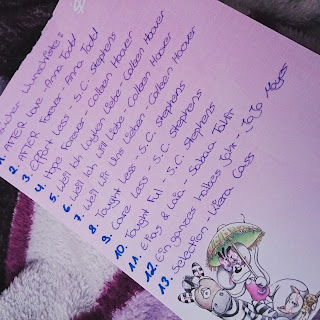 Bücher Wunschliste:
1. AFTER Love - Anna Todd
2. AFTER Forever - Anna Todd
3. Effort Less - S.C. Stephens
4. Hope Forever - Colleen Hoover
5. Weil Ich Layken Liebe - Colleen Hoover
6. Weil Ich Will Liebe - Colleen Hoover
7. Weil Wir Uns Lieben - Colleen Hoover
8. Tought Less - S.C. Stephens
9. Care Less - S.C. Stephens
10. Tought Ful - S.C. Stephens
11. Elias & Laia - Sabaa Tahir
12. Ein ganzes halbes Jahr - JoJo Moyes
13. Selection - Kiera Cass